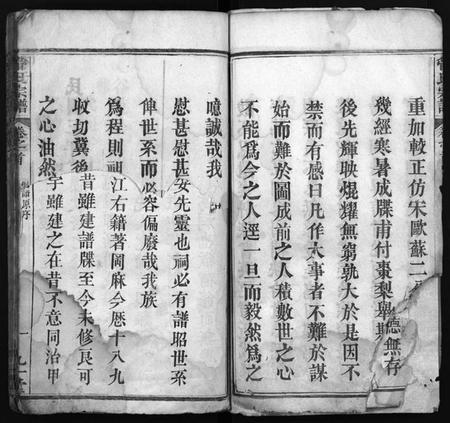 重加較正仿宋歐蘇二
幾經寒暑成牒甫付棗梨舉斯
德無存
後先輝映焜耀無窮孰大於是因不
禁而有感曰凡作大事者不難於謀
始而難於圖成前之人積數世之心
不能為今之人逕一旦而毅然為之
噫誠哉我
慰甚慰甚安先靈也祠必有譜昭世系
俾世系而必容偏廢哉我族
為程則祠江右籍著岡麻今歷十八九
收切冀後昔雖建譜牒至今未修良可
之心油然字雖建之在昔不意同治甲
曾氏宗譜
卷之首
譜原序